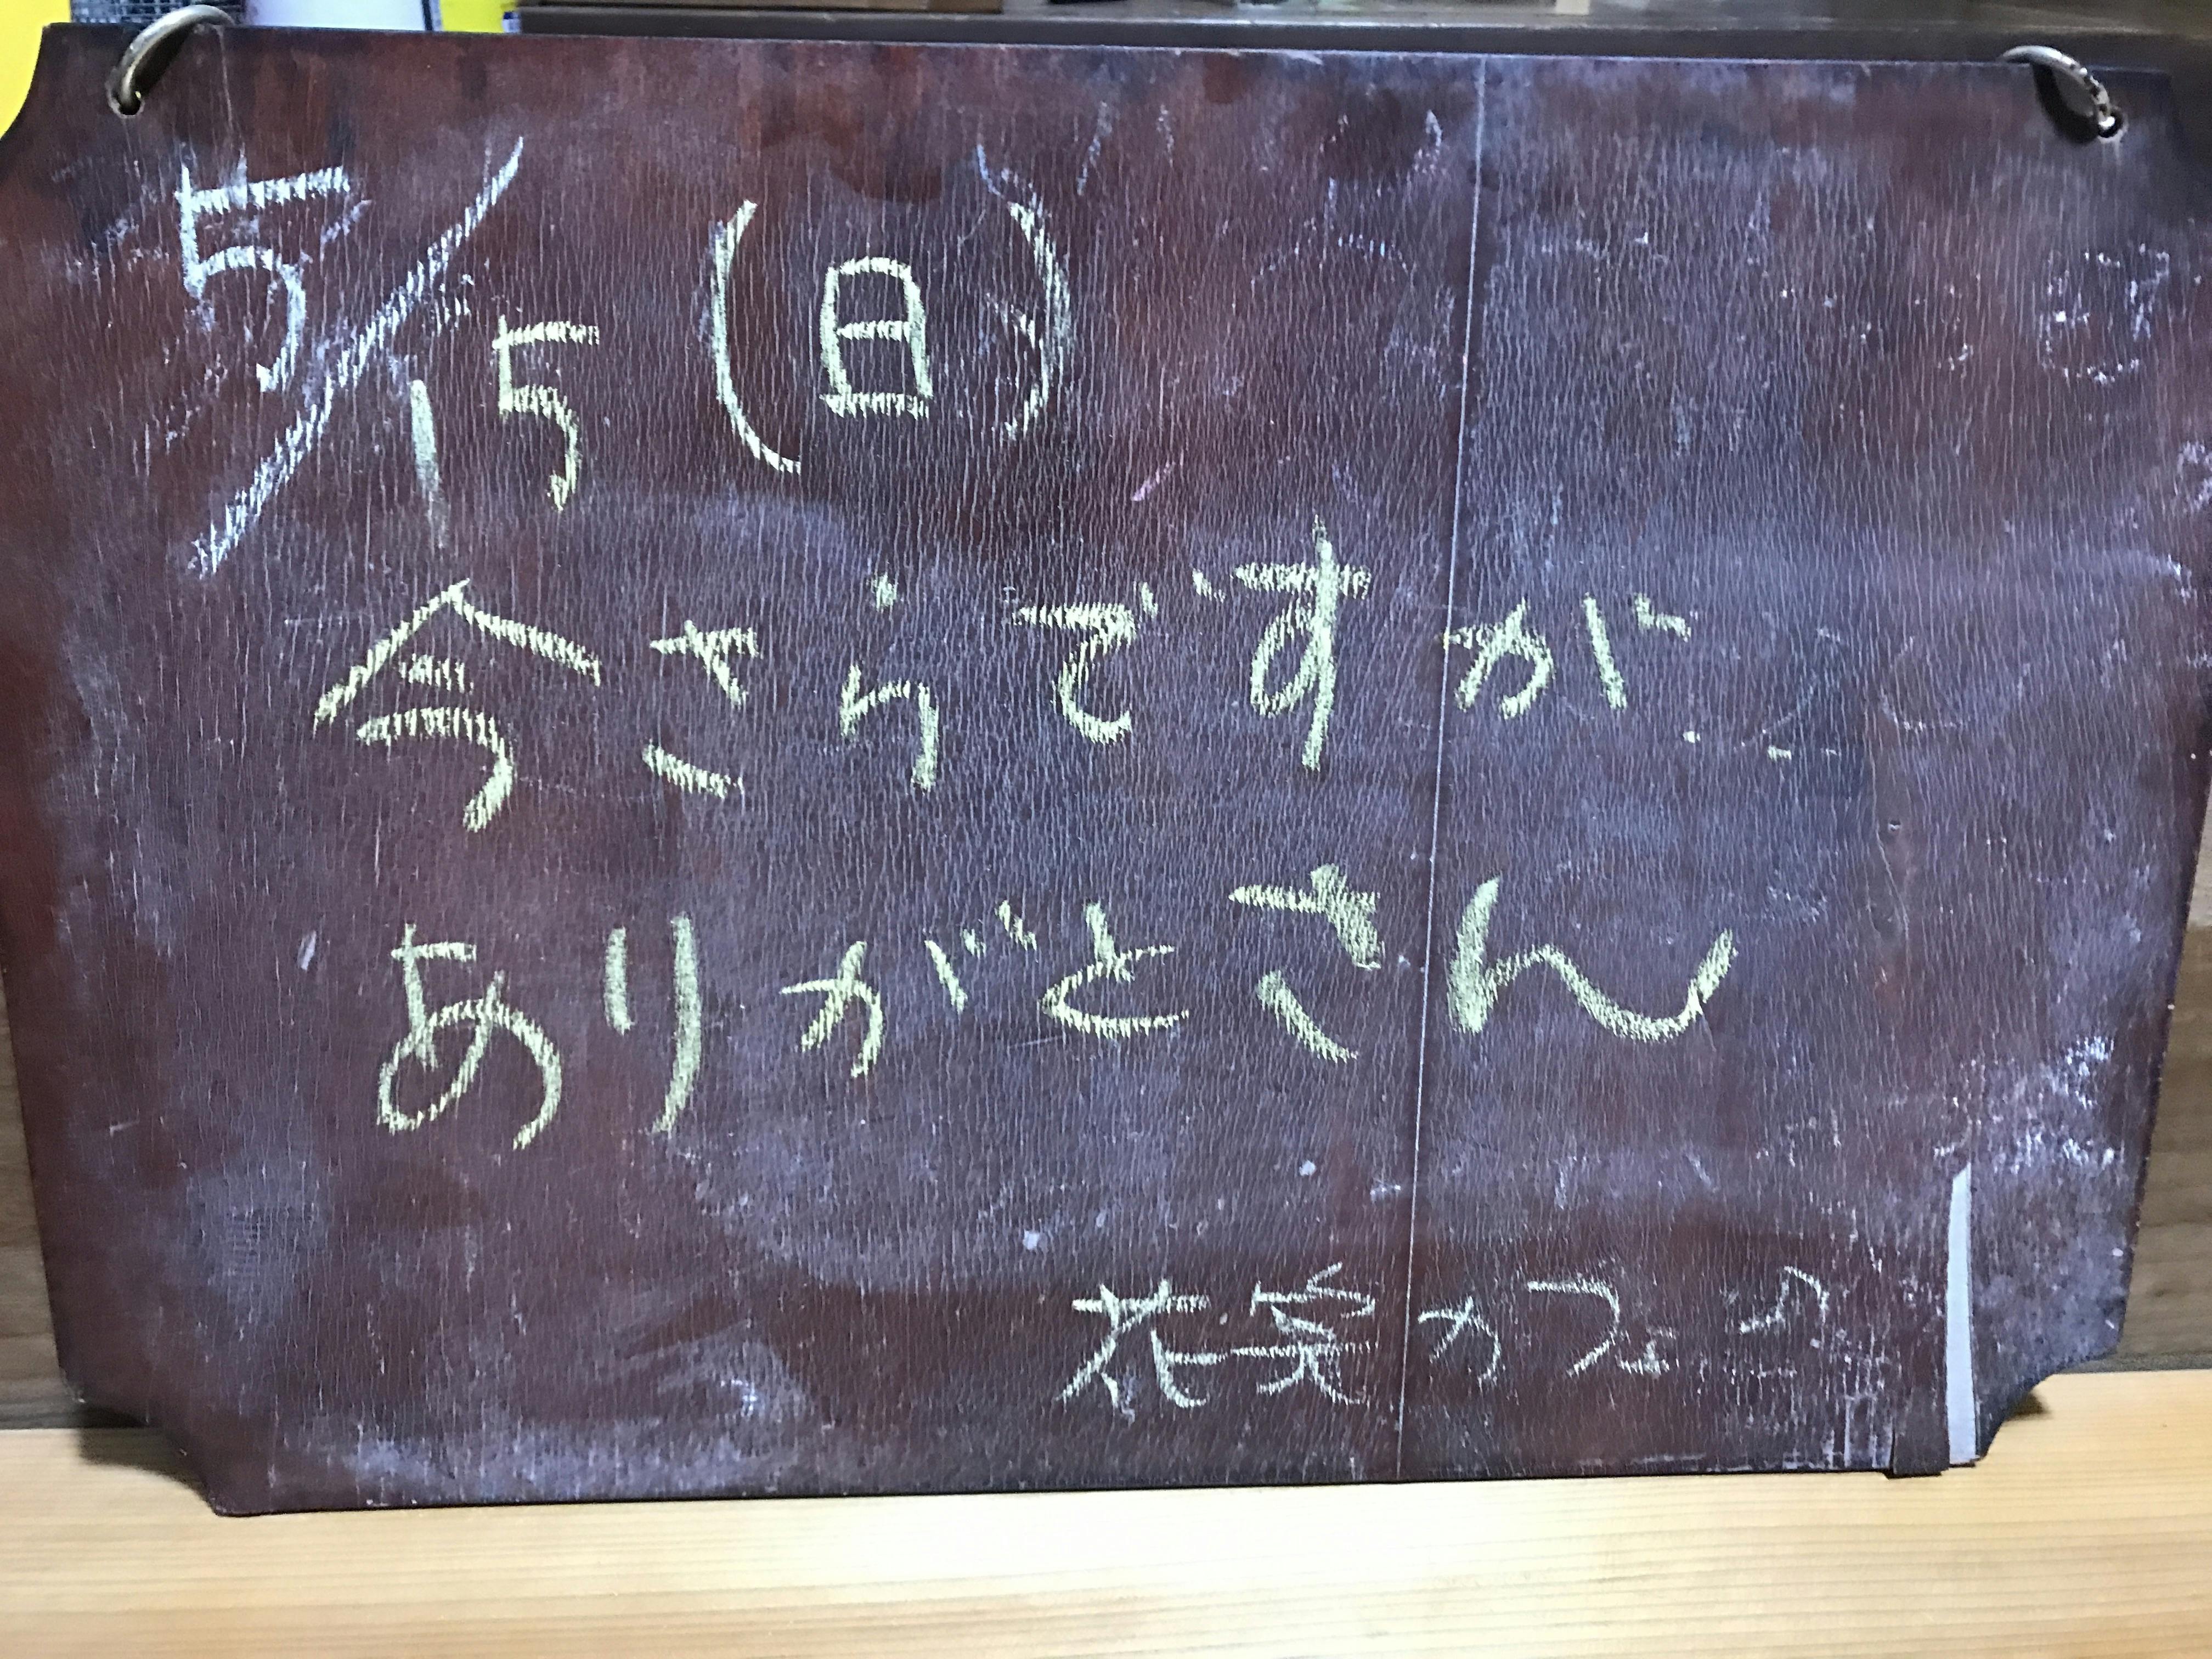 5/15(日)
今さらですが
ありがとさん
花実カフェ